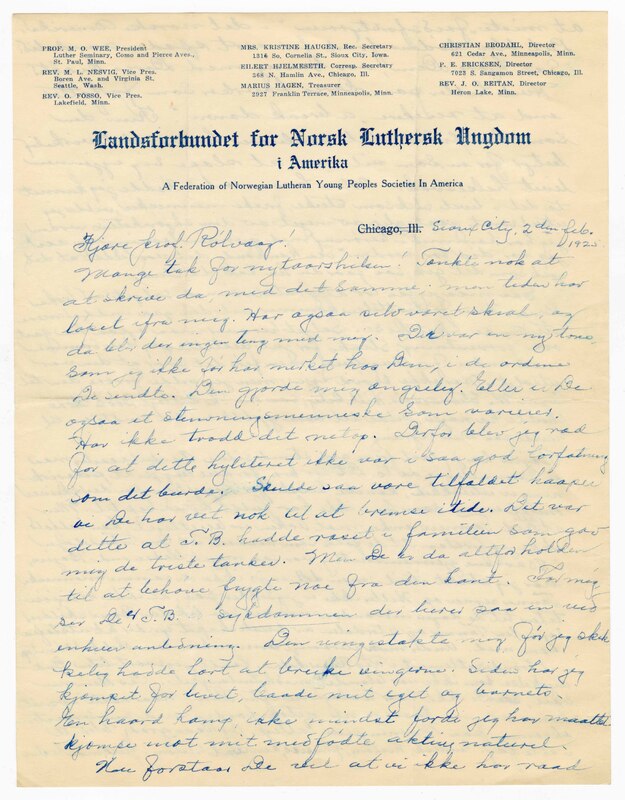 PROF. M. O. WEE, President
Luther Seminary, Como and Pierce Aves.,
St. Paul, Minn.
REV. M. L. NESVIG, Vice Pres.
Boren Ave. and Virginia St.
Seattle, Wash.
REV. O. FOSSO, Vice Pres.
Lakefield, Minn.
MRS. KRISTINE HAUGEN, Rec. Secretary
1316 So. Cornell St., Sioux City, Iowa.
EILERT HJELMESETH, Corresp. Secretary
268 N. Hamlin Ave., Chicago, Ill.
MARIUS HAGEN, Treasurer
2927 Franklin Terrace, Minneapolis, Minn.
CHRISTIAN BRODAHL, Director
621 Cedar Ave., Minneapolis, Minn.
P. E. ERICKSEN, Director
7023 S. Sangamon Street, Chicago, Ill.
REV. J. O. REITAN, Director
Heron Lake, Minn.
Landsforbundet for Norsk Luthersk Ungdom
i Amerika
A Federation of Norwegian Lutheran Young Peoples Societies In America
Chicago, Ill. Sioux City, 2den feb.
Kjære prof. Rølvaag!
Mange tak for nytaarshilsen! Tænkte nok at
at skrive da, med det samme. men tiden har
løpet ifra mig. Har ogsaa selv været skral, og
da blir der ingen ting med mig. Der var en ny tone
som jeg ikke før har merket hos Dem, i de ordene
De sendte. Den gjorde mig ængstelig. Eller er De
ogsaa et stemningsmenneske som varierer.
Har ikke trodd det netop. Derfor blev jeg ræd
for at dette hylsteret ikke var i saa god forfatning
som det burde. Skulde saa være tilfældet haaper
De har vet nok til at bremse itide. Det var
dette at T.B. hadde raset i familien som gav
mig de triste tanker. Men De er da altfor holden
til at behøve frygte noe fra den kant. For mig
ser De, T.B. sykdommen der lurer saa en ved
enhver anledning. Den vingestækte mig før jeg
hadde lært at bruke vingerne. Siden har jeg
kjæmpet for livet, baade mit eget og barnets.
En haard kamp, ikke mindst fordi jeg har maattet
kjæmpe mot mit medfødte aktive naturel.
Nu forstaar De vel at vi ikke har raad